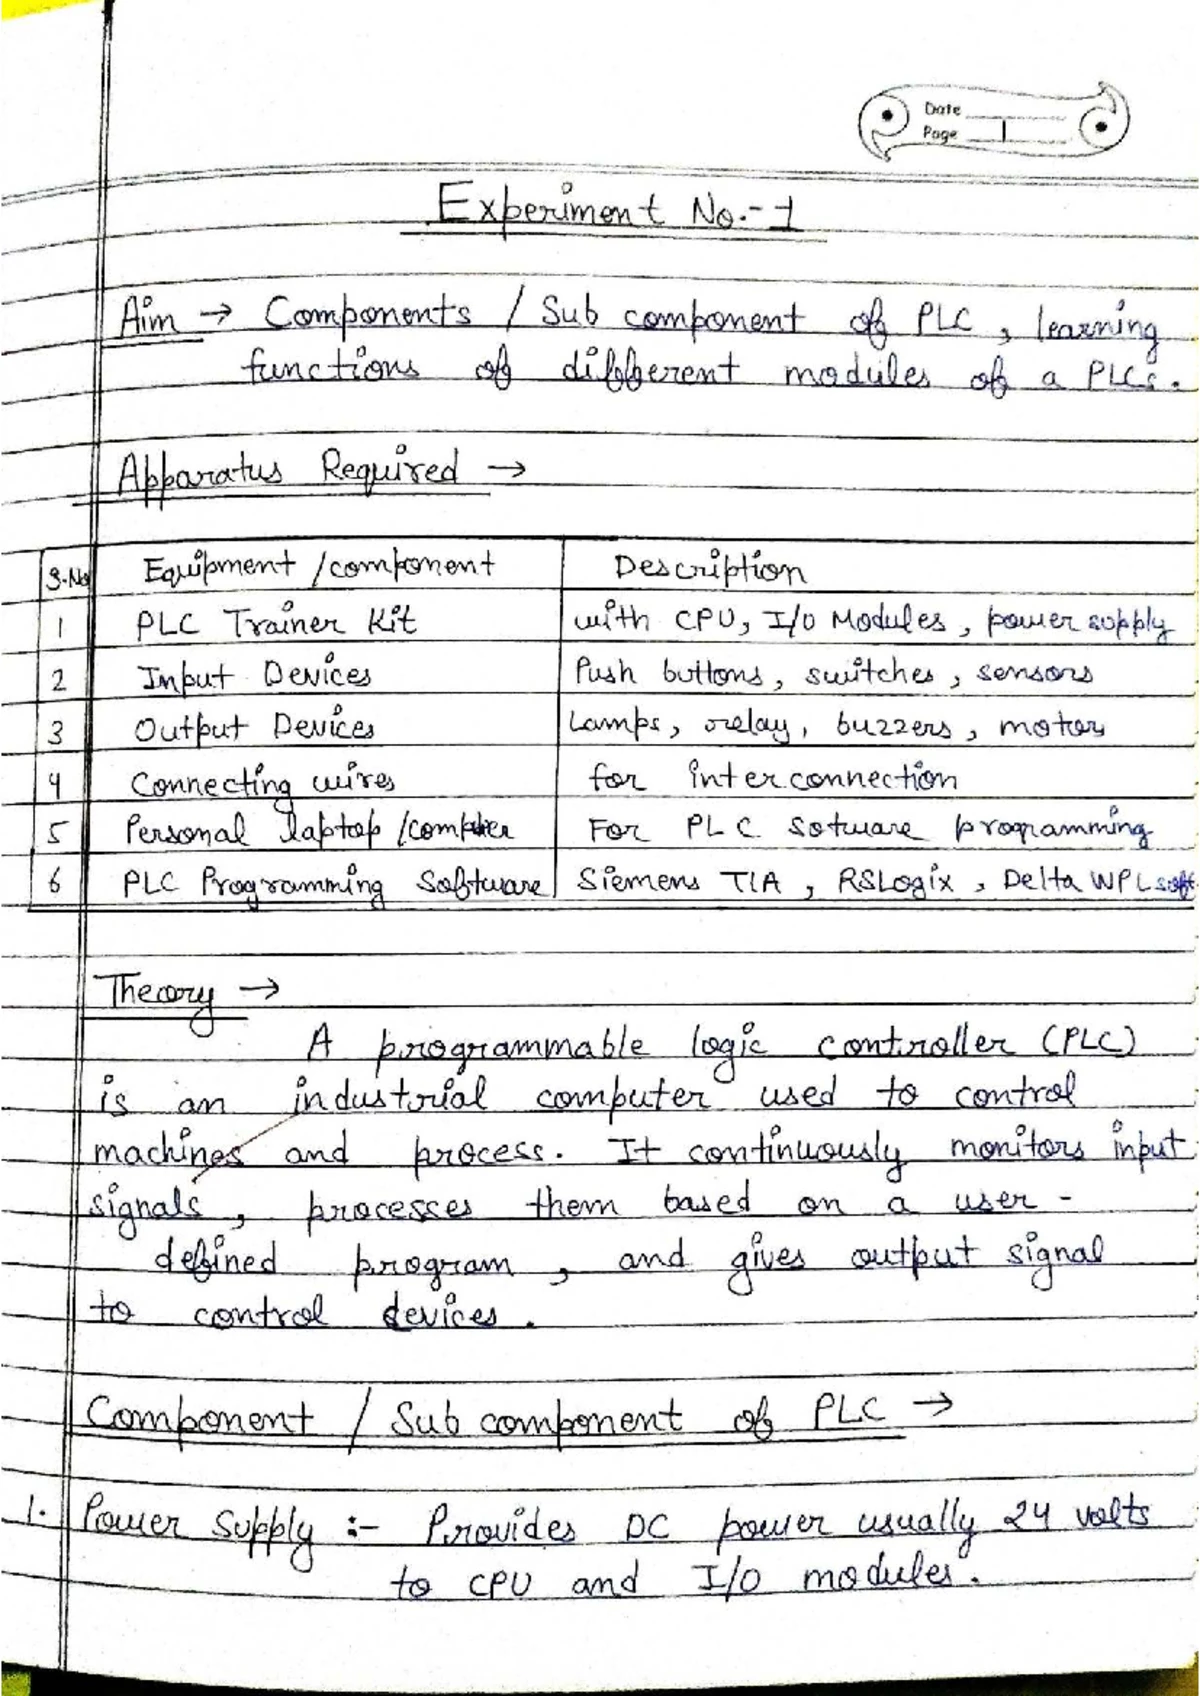 Date
Page 1
Experiment No.-1
Aim → Components / Sub component of PLC, learning
functions of different modules of a PLCs.
Apparatus Required →
S.No Equipment /component Description
1 PLC Trainer Kit with CPU, I/O Modules, power supply
2 Input Devices Push buttons, switches, sensors
3 Output Devices Lamps, relay, buzzers, motor
4 Connecting wires for interconnection
5 Personal laptop /computer For PLC Sotware programming
6 PLC Programming Software Siemens TIA, RSLogix, Delta WPL soft
Theory →
A programmable logic controller (PLC)
is an industrial computer used to control
machines and process. It continuously monitors input
signals, processes them based on a user-
defined program, and gives output signal
to control devices.
Component / Sub component of PLC →
1. Power Supply :- Provides DC power usually 24 volts
to CPU and I/O modules.